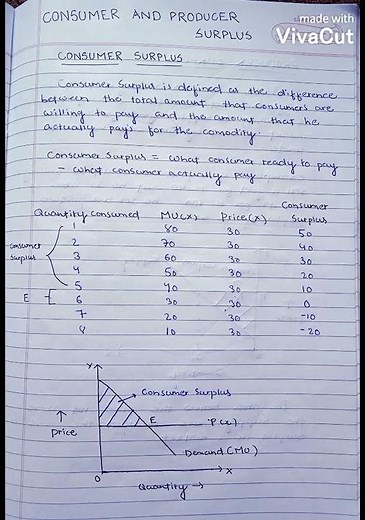 made with
VivaCut
CONSUMER AND PRODUCER
SURPLUS
CONSUMER SURPLUS
Consumer Surplus is defined as the difference
between the total amount that consumers are
willing to pay and the amount that he
actually pays for the comodity.
Consumer Surplus = what consumer ready to pay
- what consumer actually pay
Quantity consumed MU(X) Price(X) Consumer Surplus
1 80 30 50
2 70 30 40
3 60 30 30
4 50 30 20
5 40 30 10
6 30 30 0
7 20 30 -10
8 10 30 -20
consumer
surplus
E
Y
Consumer Surplus
↑
Price
E
P(x)
Demand (MU)
O
X
Quantity →